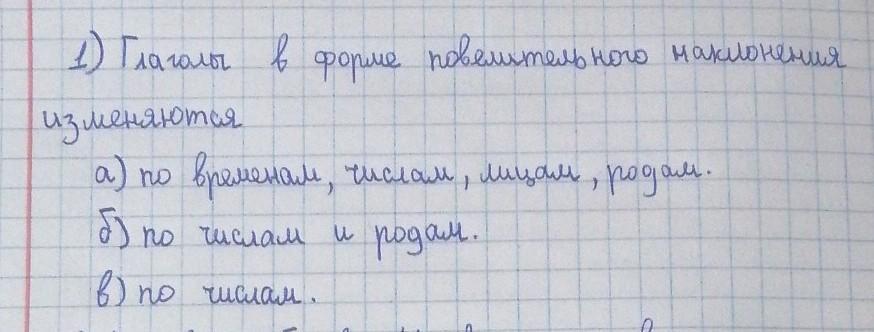 1) Глаголы в форме повелительного наклонения
изменяются
а) по временам, числам, лицам, родам.
б) по числам и родам.
в) по числам.